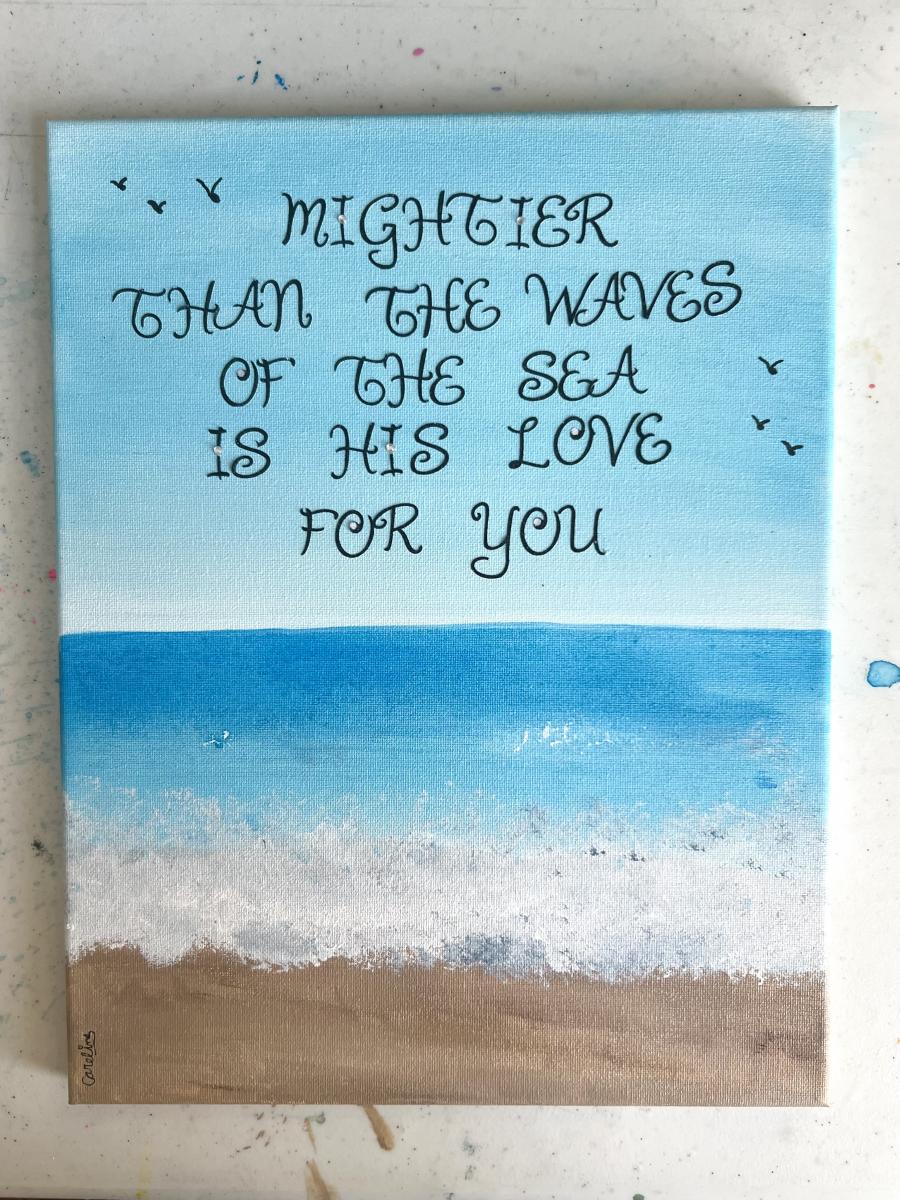 MIGHTIER
THAN THE WAVES
OF THE SEA
IS HIS LOVE
FOR YOU
Caroline